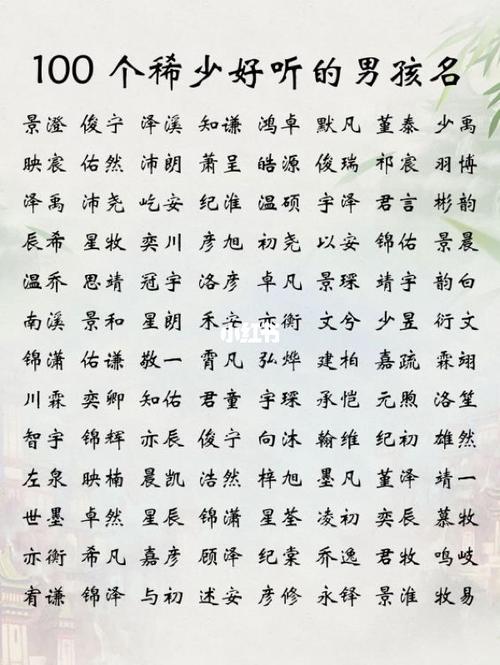 100个稀少好听的男孩名
景澄 俊宁 泽溪 知谦 鸿卓 默凡 堇泰 少禹
映宸 佑然 沛朗 萧呈 皓源 俊瑞 祁宸 羽博
泽禹 沛尧 屹安 纪淮 温硕 宇泽 君言 彬韵
辰希 星牧 奕川 彦旭 初尧 以安 锦佑 景晨
温乔 思靖 冠宇 洛彦 卓凡 景琛 靖宇 韵白
南溪 景和 星朗 禾安 亦衡 文兮 少昱 衍文
小红书
锦潇 佑谦 敬一 霄凡 弘烨 建柏 嘉疏 霖翊
川霖 奕卿 知佑 君童 宇琛 承恺 元煦 洛笙
智宇 锦辉 亦辰 俊宁 向沐 翰维 纪初 雄然
左泉 映楠 晨凯 浩然 梓旭 墨凡 堇泽 靖一
世墨 卓然 星辰 锦潇 星荃 凌初 奕辰 慕牧
亦衡 希凡 嘉彦 顾泽 纪棠 乔逸 君牧 鸣岐
宥谦 锦泽 与初 述安 彦修 永铎 景淮 牧易